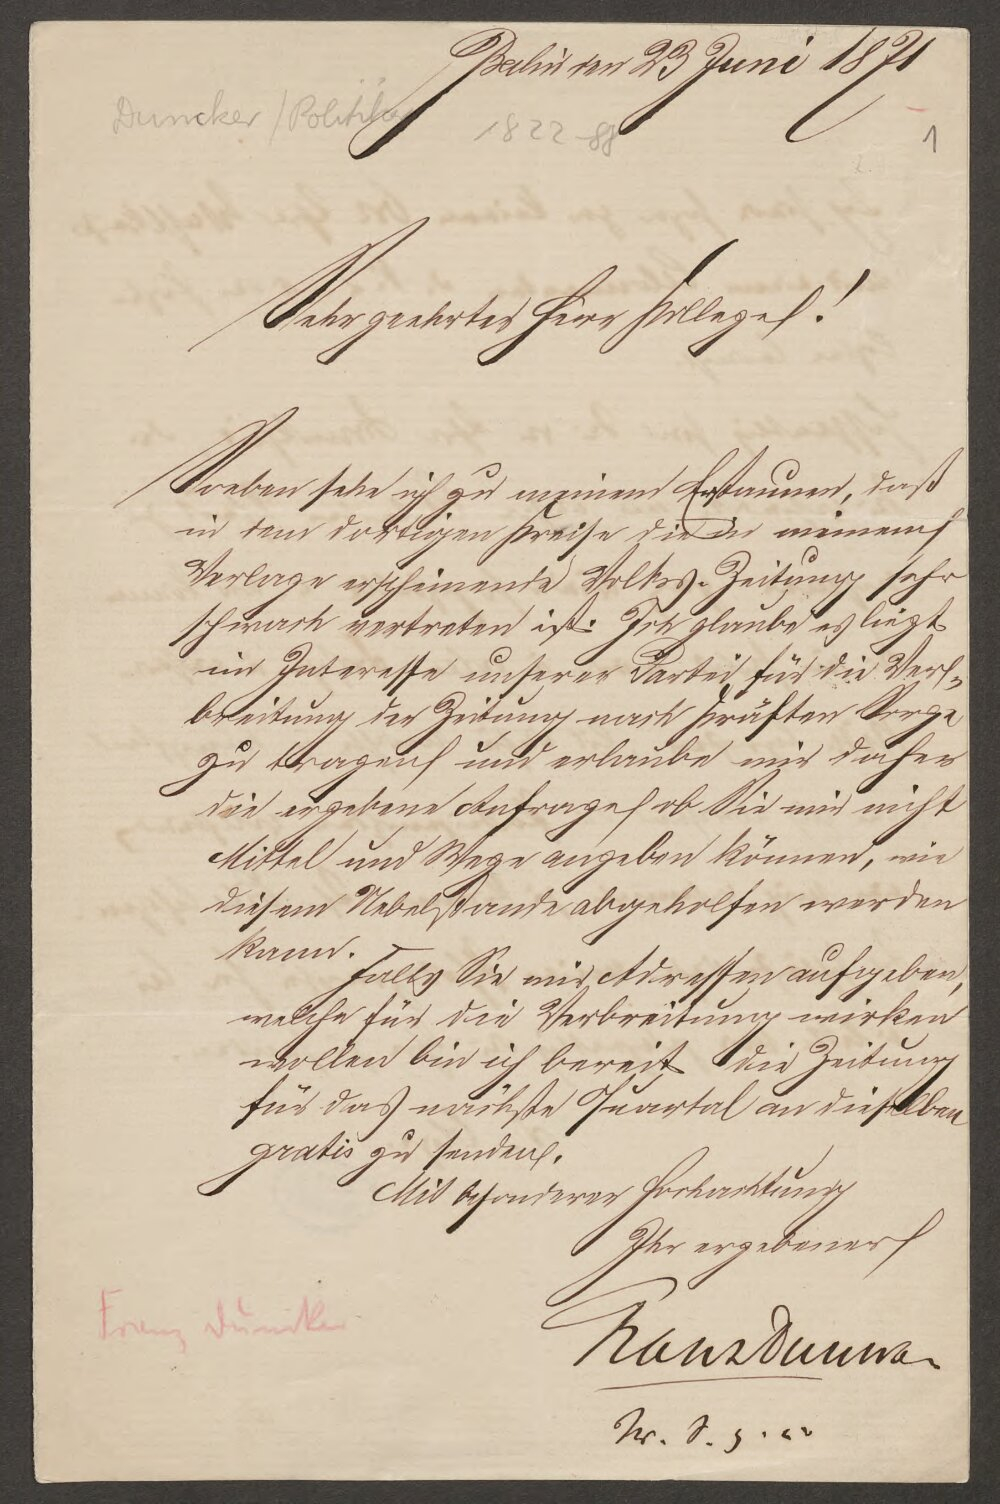 Berlin den 23 Juni 1871
Duncker / Politiker
1822-88
1
Sehr geehrter Herr Kollege!
Soeben sehe ich zu meinem Erstaunen, daß
in dem dortigen Kreise die in meinem
Verlage erscheinende Volks-Zeitung sehr
schwach vertreten ist. Ich glaube es liegt
im Interesse unserer Partei für die Ver-
breitung der Zeitung nach Kräften Sorge
zu tragen und erlaube mir daher
die ergebene Anfrage ob Sie mir nicht
Mittel und Wege angeben können, wie
diesem Uebelstande abgeholfen werden
kann.
Falls Sie mir Adressen aufgeben,
welche für die Verbreitung wirken
wollen bin ich bereit die Zeitung
für das nächste Quartal an dieselben
gratis zu senden.
Mit besonderer Hochachtung
Ihr ergebener
Franz Duncker
Franz Duncker